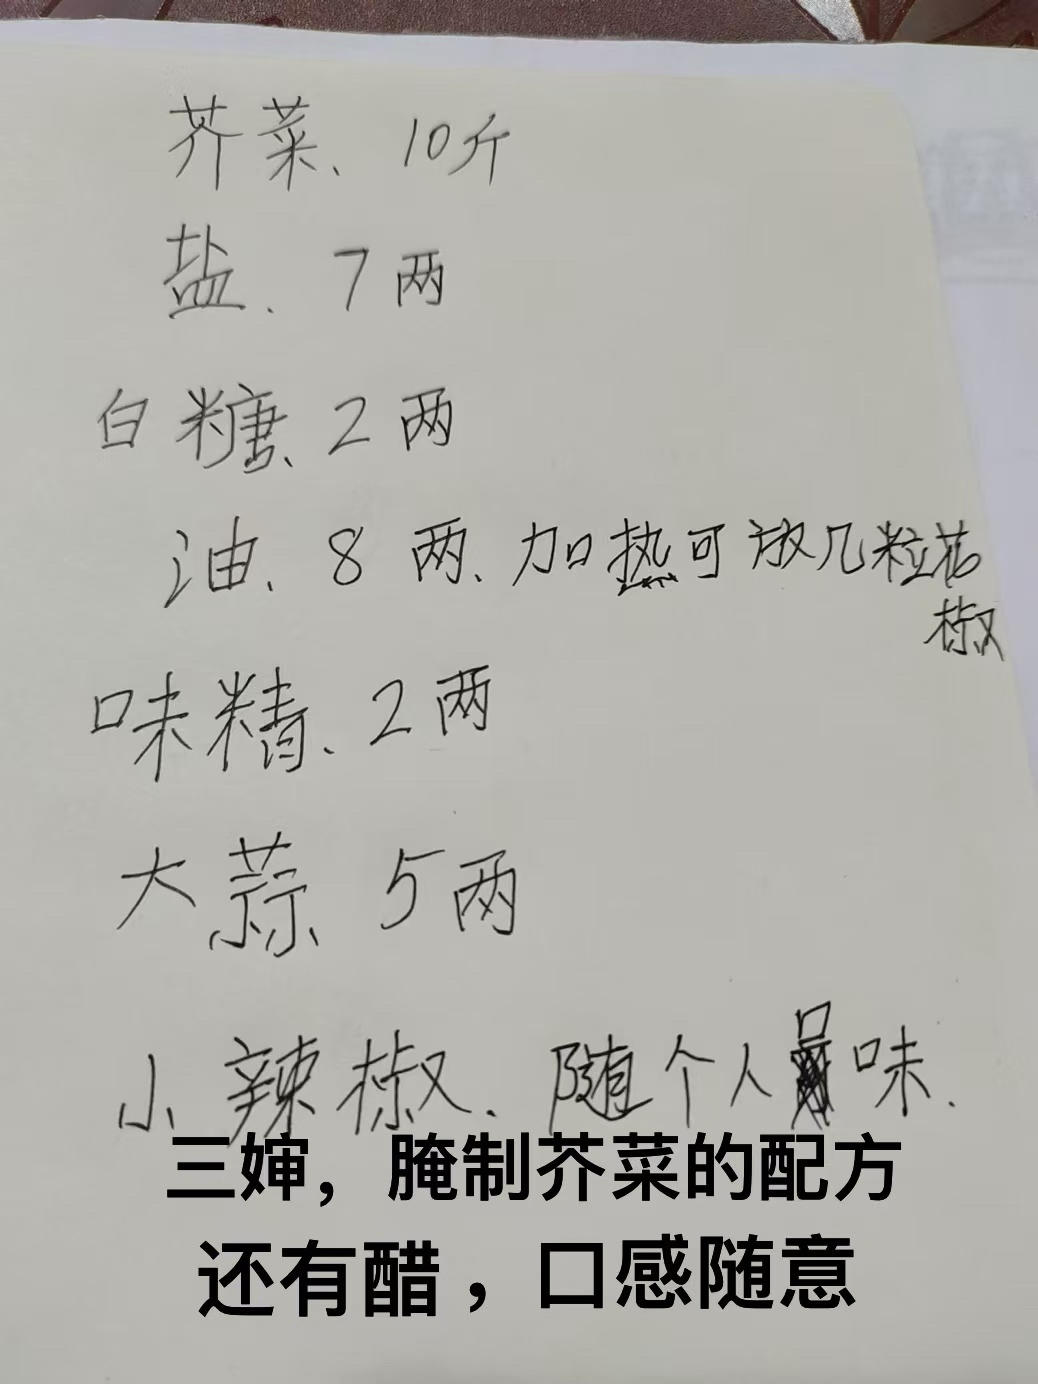 芥菜、10斤
盐、7两
白糖、2两
油、8两、加热可放几粒花
椒
味精、2两
大蒜、5两
小辣椒、随个人口味.
三婶，腌制芥菜的配方
还有醋，口感随意